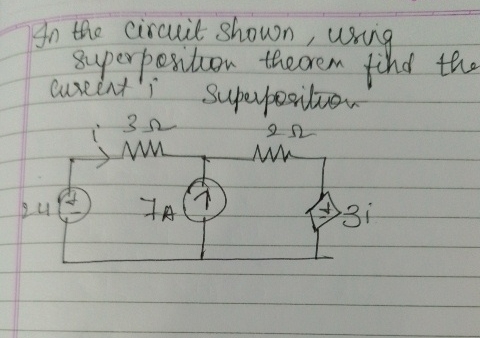 In the circuit shown, using
superposition theorem find the
current i Superposition
i 3Ω 2Ω
24 7A 3i